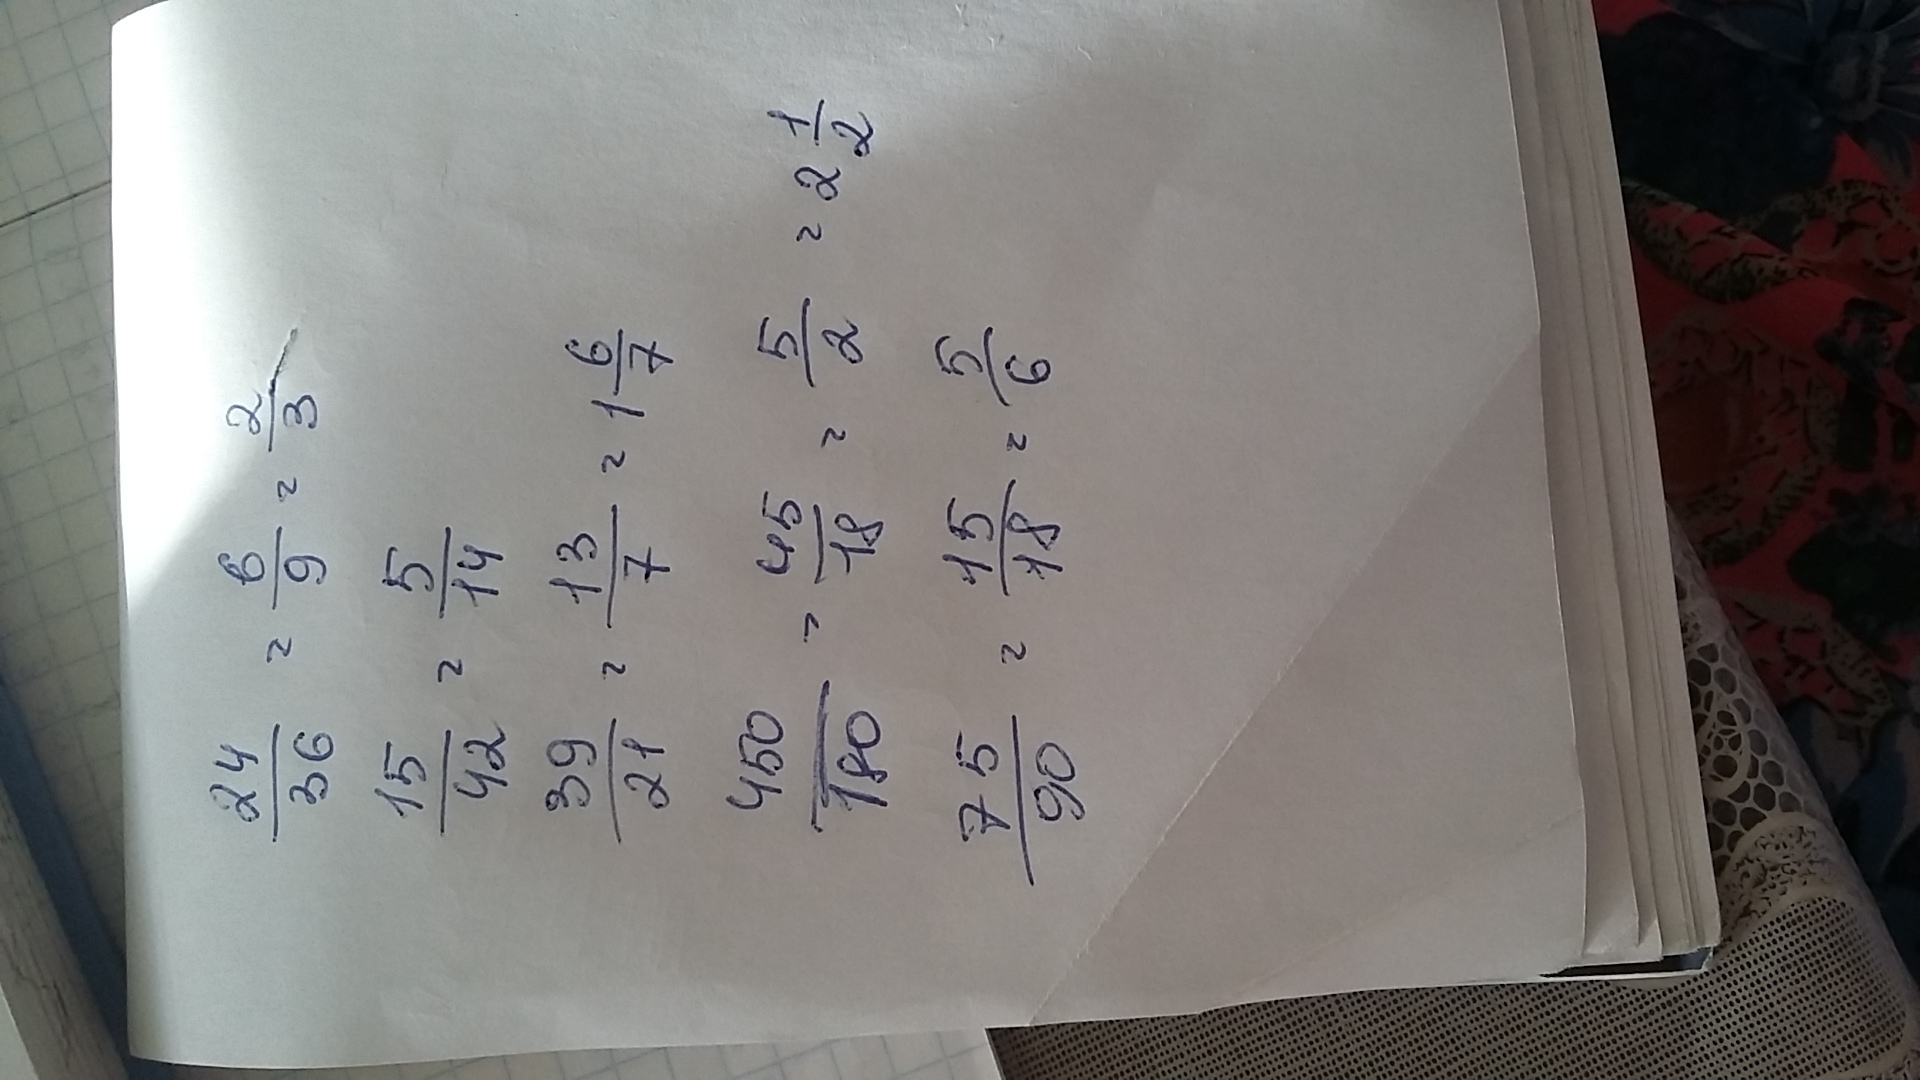 24/36 = 6/9 = 2/3
15/42 = 5/14
39/21 = 13/7 = 1 6/7
450/180 = 45/18 = 5/2 = 2 1/2
75/90 = 15/18 = 5/6